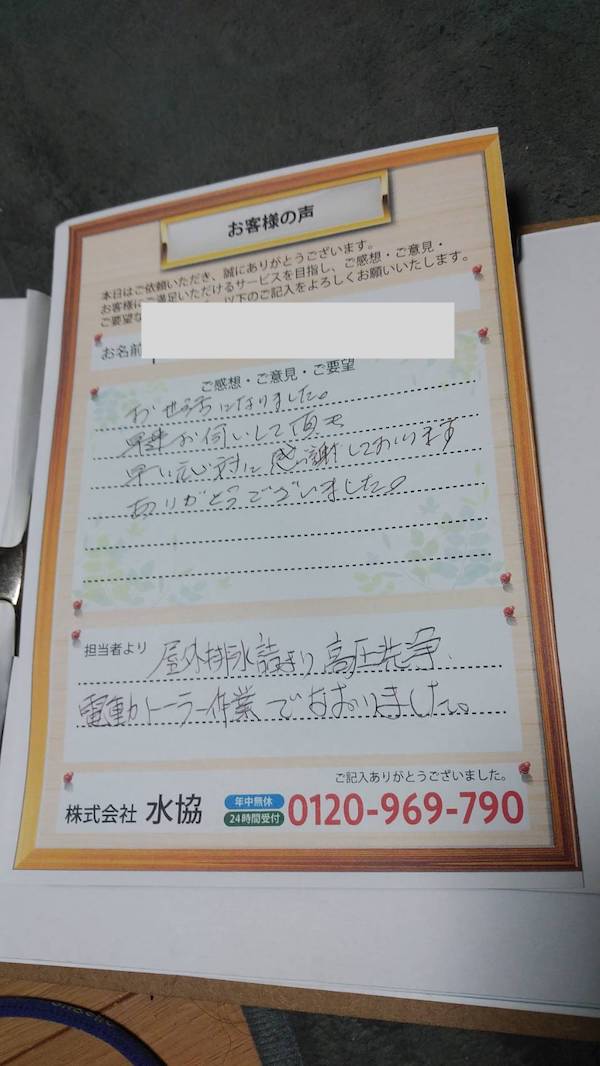 お客様の声
本日はご依頼いただき、誠にありがとうございます。
お客様にご満足いただけるサービスを目指し、ご感想・ご意見・
ご要望な 以下のご記入をよろしくお願いいたします。
お名前
ご感想・ご意見・ご要望
お世話になりました。
早速お伺いして頂き
早い応対に感謝しております
ありがとうございました。
担当者より
屋外排水詰まり高圧洗浄、
電動トーラー作業でなおりました。
ご記入ありがとうございました。
株式会社 水協
年中無休
24時間受付
0120-969-790